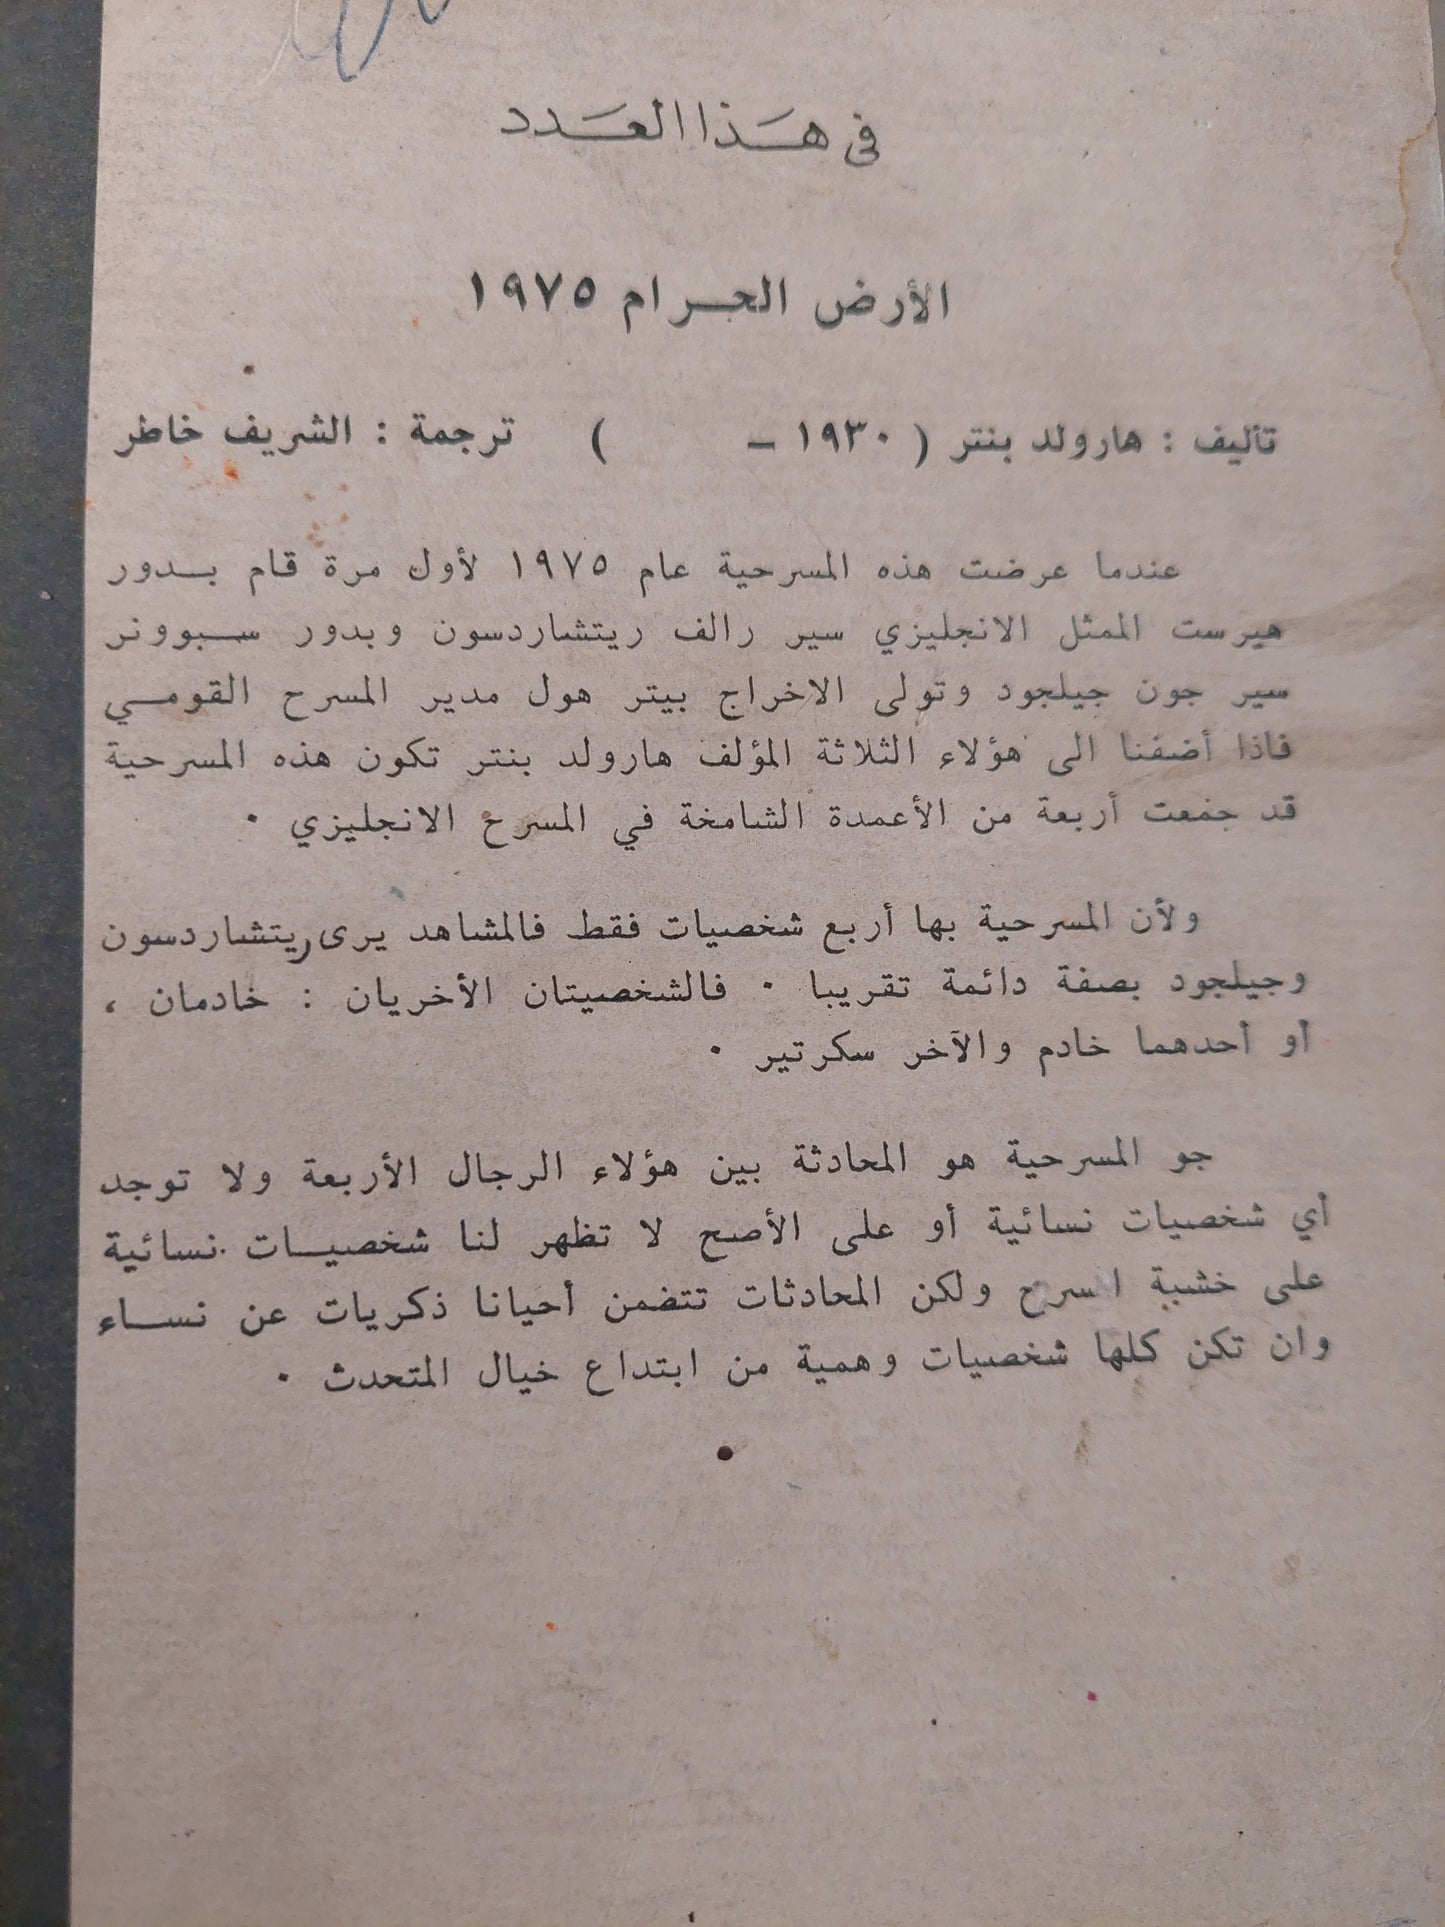 في هذا العدد
الأرض الحرام ١٩٧٥
تأليف : هارولد بنتر ( ١٩٣٠ – ) ترجمة : الشريف خاطر
عندما عرضت هذه المسرحية عام ١٩٧٥ لأول مرة قام بدور
هيرست الممثل الانجليزي سير رالف ريتشاردسون وبدور سبوونر
سير جون جيلجود وتولى الاخراج بيتر هول مدير المسرح القومي
فاذا أضفنا الى هؤلاء الثلاثة المؤلف هارولد بنتر تكون هذه المسرحية
قد جمعت أربعة من الأعمدة الشامخة في المسرح الانجليزي ٠
ولأن المسرحية بها أربع شخصيات فقط فالمشاهد يرى ريتشاردسون
وجيلجود بصفة دائمة تقريبا ٠ فالشخصيتان الأخريان : خادمان ،
أو أحدهما خادم والآخر سكرتير ٠
جو المسرحية هو المحادثة بين هؤلاء الرجال الأربعة ولا توجد
أي شخصيات نسائية أو على الأصح لا تظهر لنا شخصيات نسائية
على خشبة المسرح ولكن المحادثات تتضمن أحيانا ذكريات عن نساء
وان تكن كلها شخصيات وهمية من ابتداع خيال المتحدث ٠